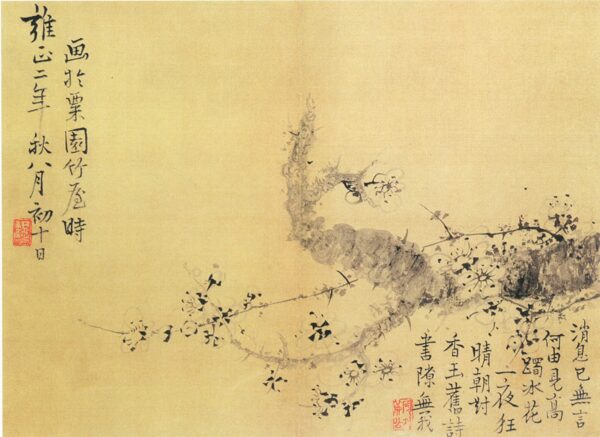 消息已無言
何由見嵩
躅冰花
一夜狂
晴朝對
香玉舊詩
書隙無我
画於粟園竹屋時
雍正二年秋八月初十日